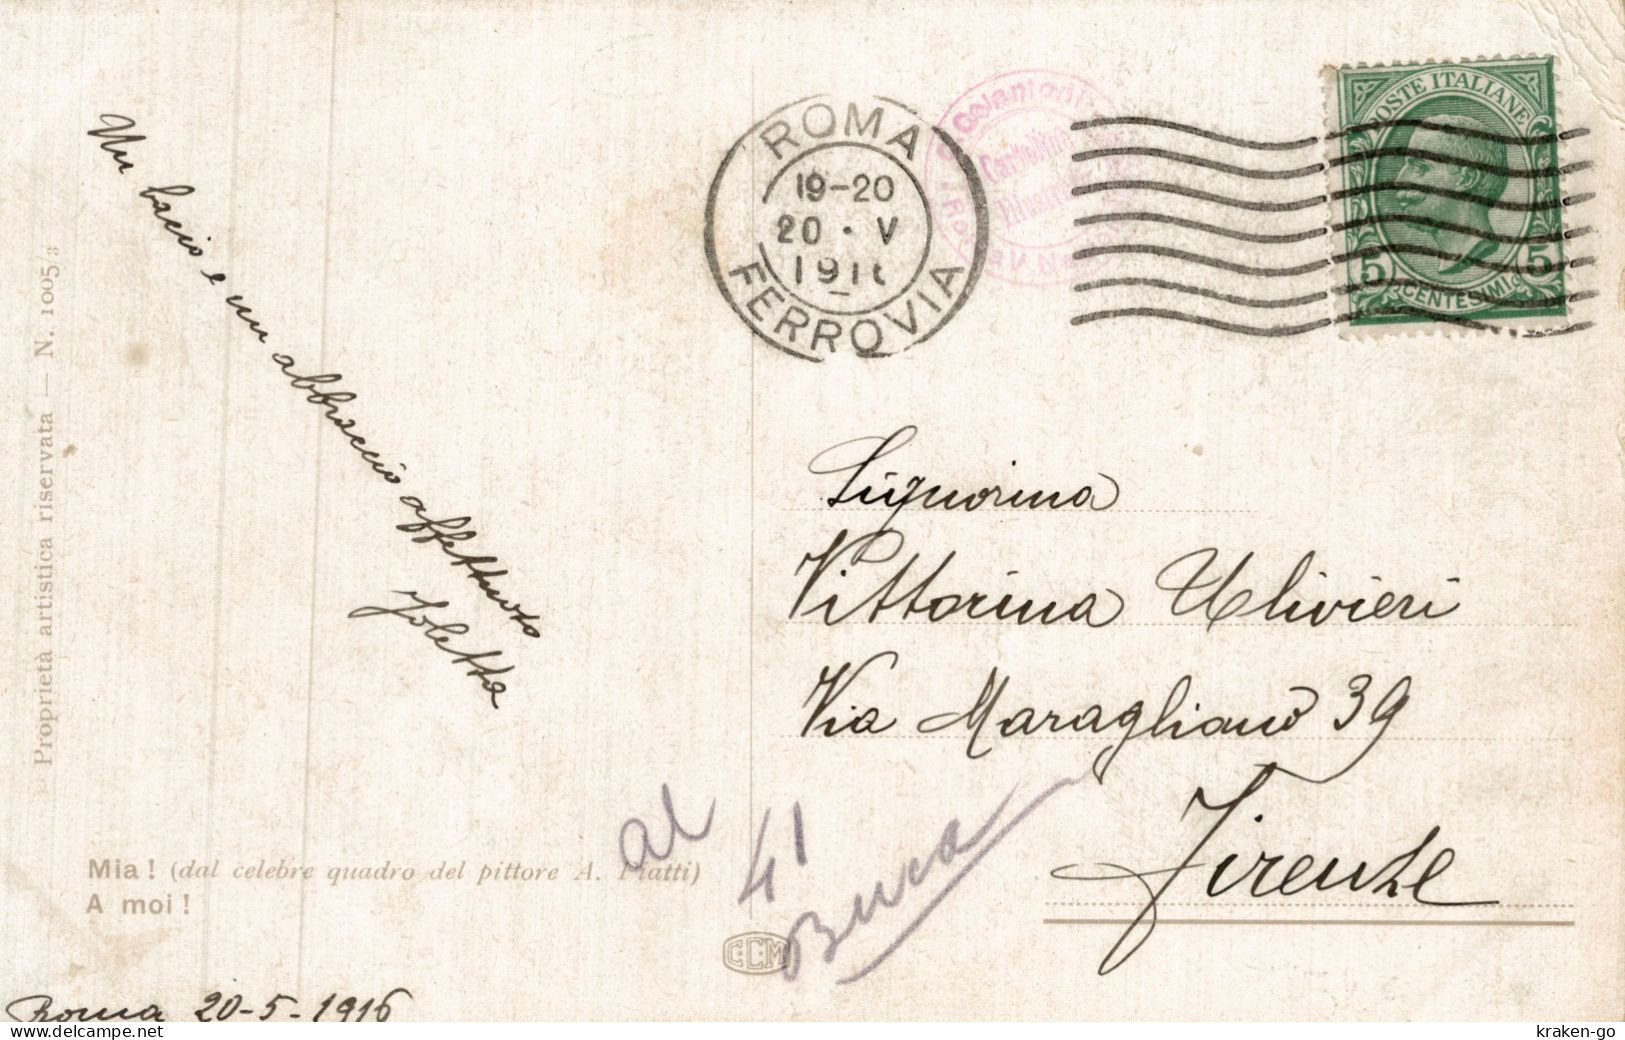 Proprietà artistica riservata — N. 1005/3
Un bacio e un abbraccio affettuoso
Joletta
Mia! (dal celebre quadro del pittore A. Piatti)
A moi!
Roma 20-5-1916
ROMA
19-20
20 · V
FERROVIA
POSTE ITALIANE
5 CENTESIMI 5
Signorina
Vittorina Ulivieri
Via Maragliano 39
Firenze
al
41
C.C.M
kraken-go